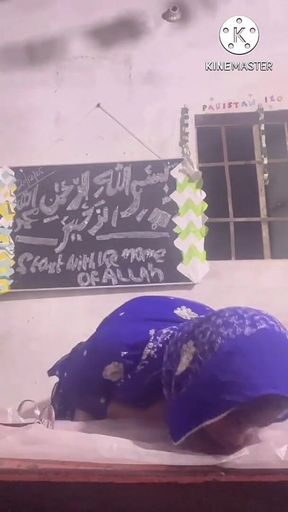 KINEMASTER
PAKISTAN
بسم الله الرحمن
الرحيم
Start with the name
OF ALLAH